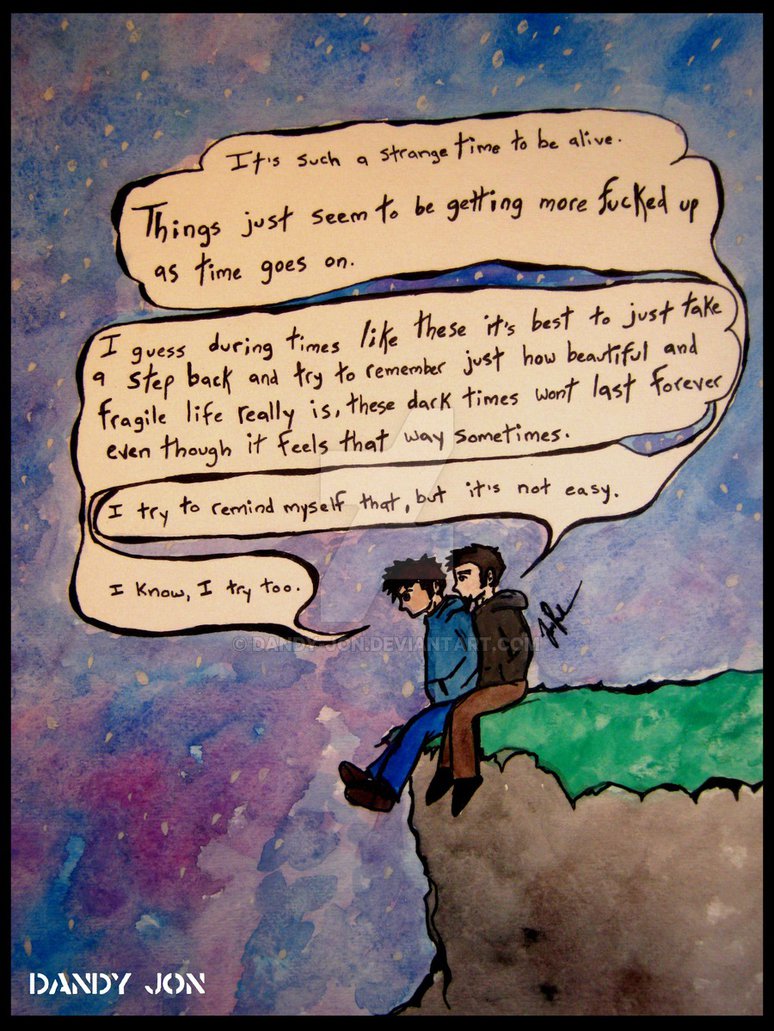 It's such a strange time to be alive.
Things just seem to be getting more fucked up
as time goes on.
I guess during times like these it's best to just take
a step back and try to remember just how beautiful and
fragile life really is, these dark times wont last forever
even though it feels that way sometimes.
I try to remind myself that, but it's not easy.
I know, I try too.
© DANDY-JON.DEVIANTART.COM
DANDY JON